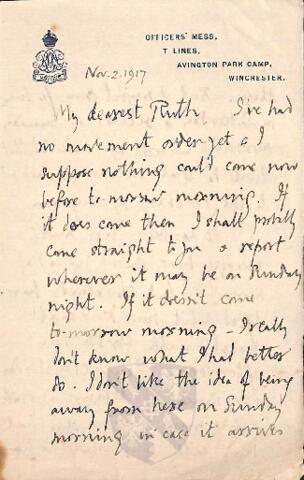 OFFICERS' MESS,
T LINES,
AVINGTON PARK CAMP,
WINCHESTER.
Nov. 2. 1917
My dearest Ruth I've had
no movement order yet & I
suppose nothing could come now
before to-morrow morning. If
it does come then I shall probably
come straight to you & report
wherever it may be on Sunday
night. If it doesn't come
to-morrow morning - I really
don't know what I had better
do. I don't like the idea of being
away from here on Sunday
morning in case it arrives